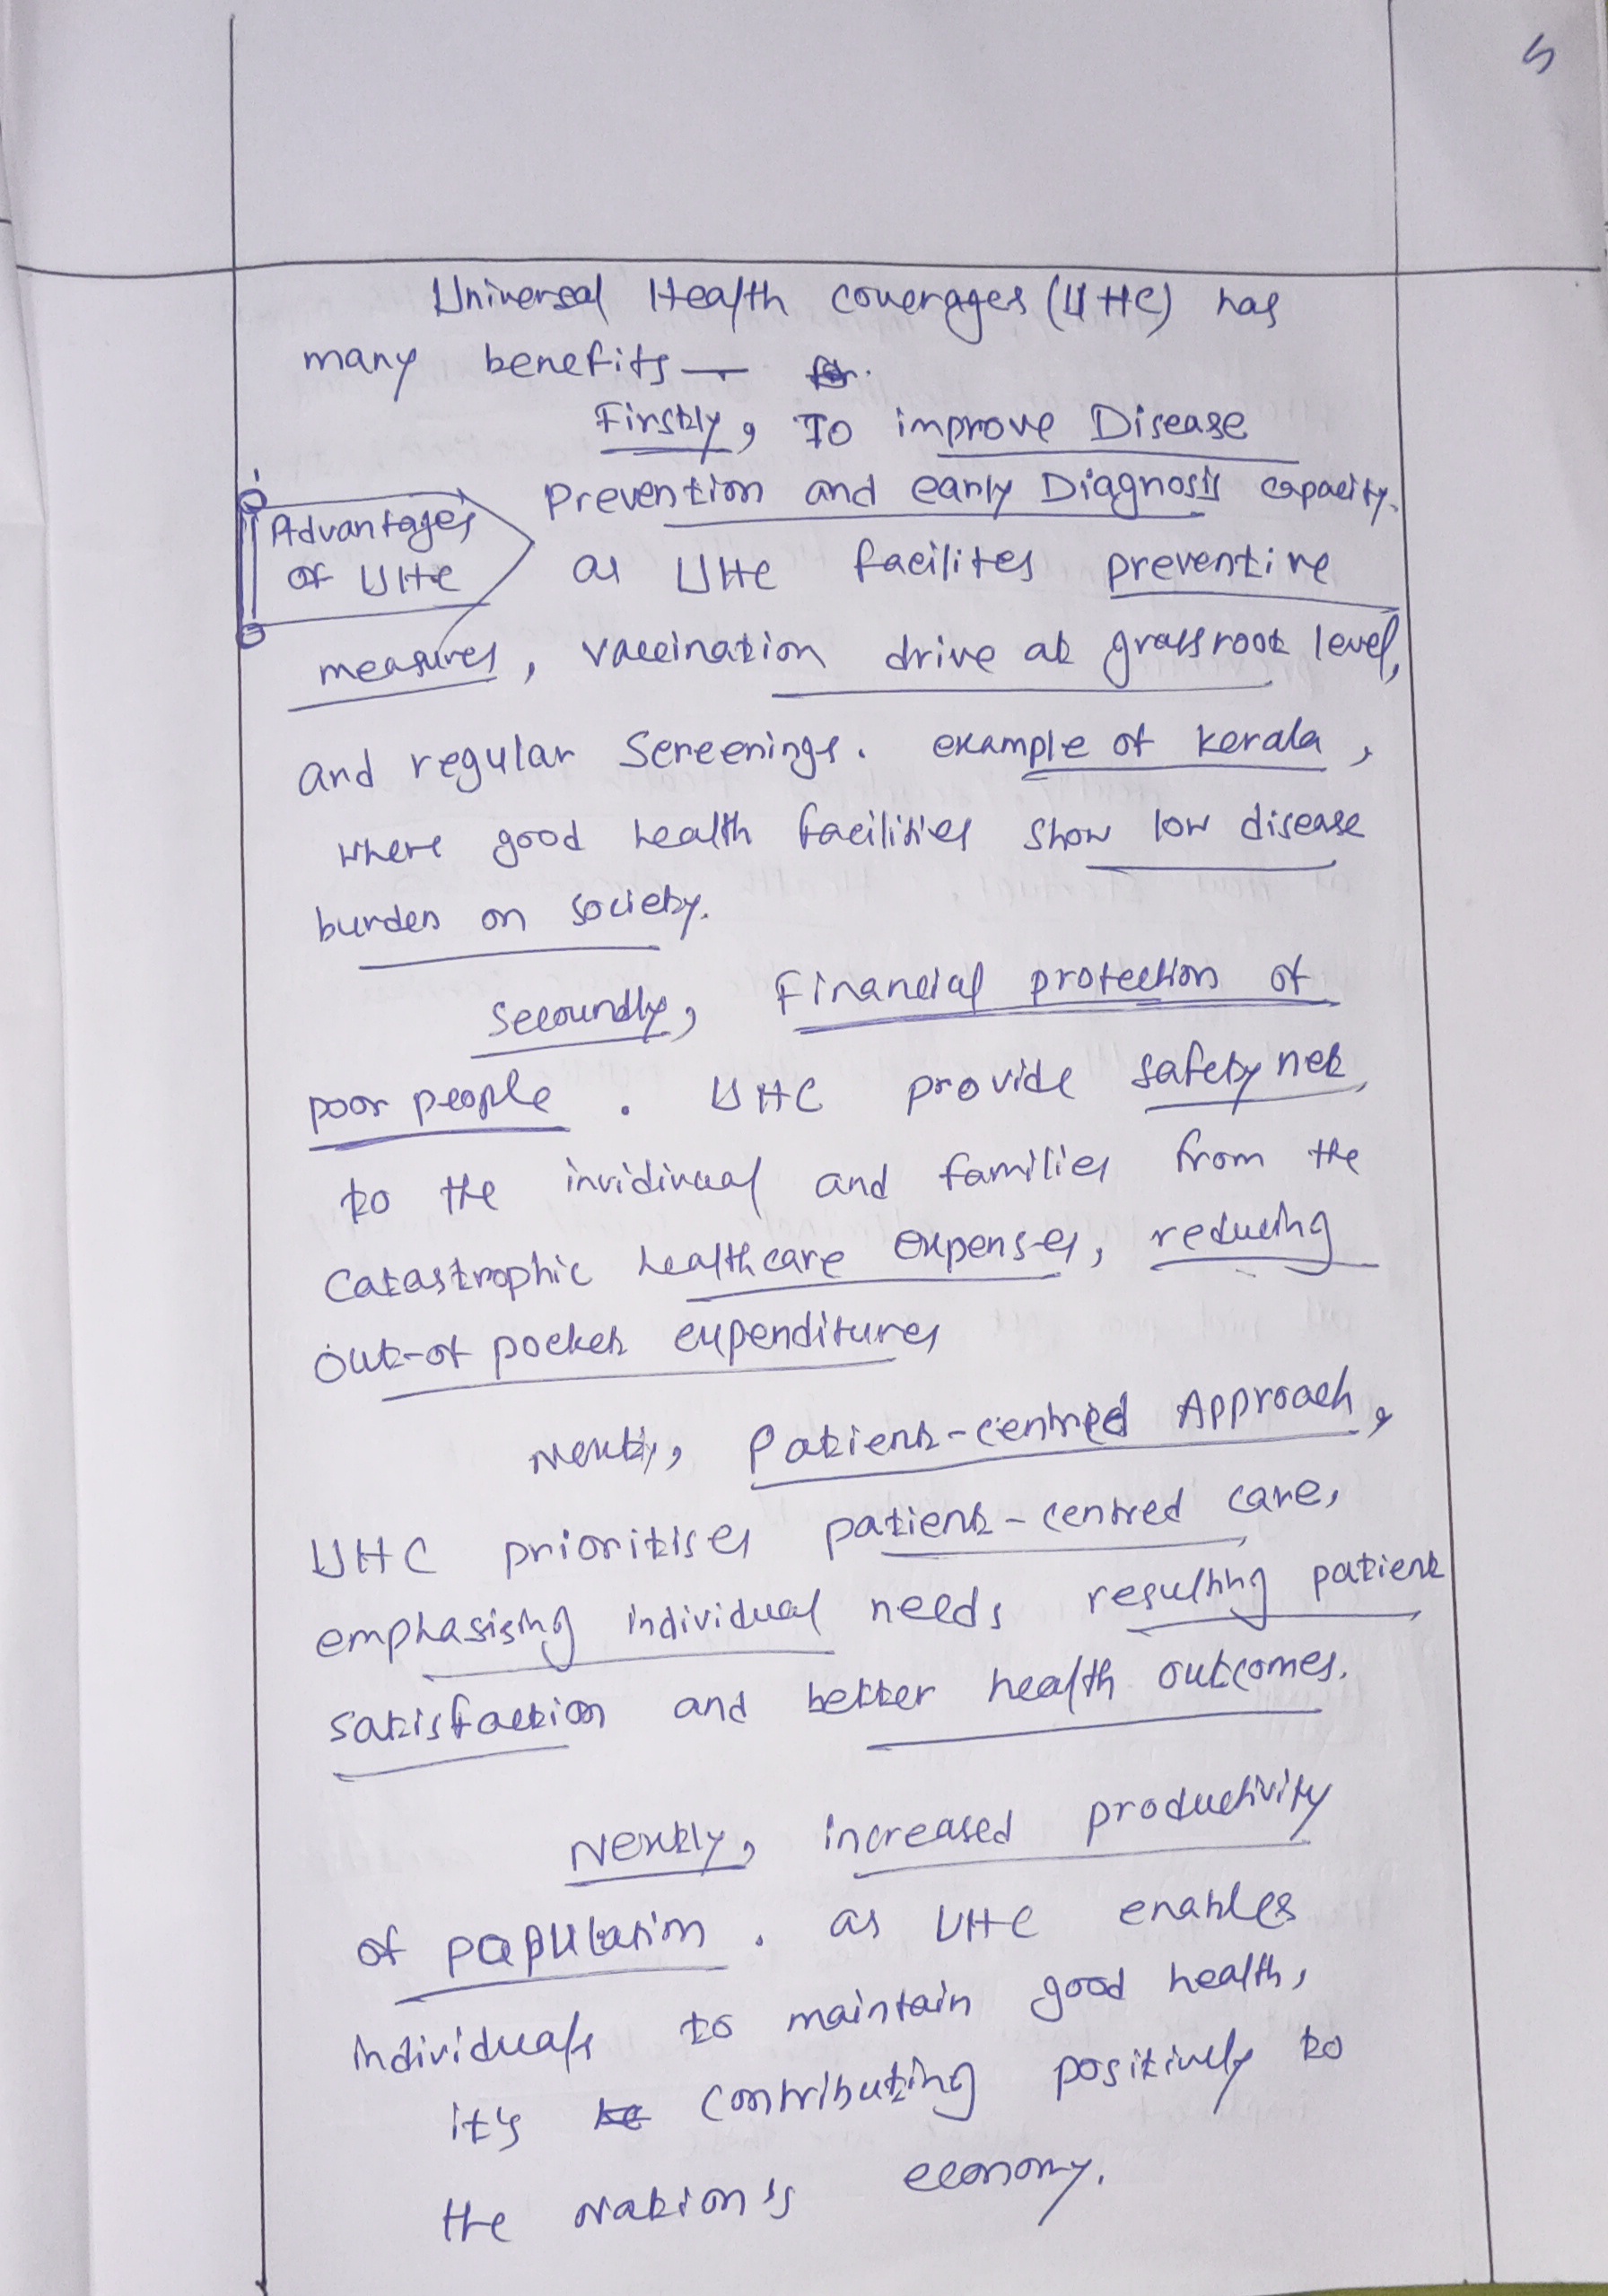 5
Universal Health coverages (UHC) has
many benefits —
Firstly, To improve Disease
Prevention and early Diagnosis capacity.
Advantages
of UHC
as UHC facilites preventive
measures, vaccination drive at grassroot level,
and regular Screenings. example of Kerala,
where good health facilities show low disease
burden on society.
Secoundly, Financial protection of
poor people. UHC provide safety net
to the invidivual and families from the
Catastrophic healthcare expenses, reducing
out-of pocket expenditures
Nextly, Patient-centred Approach,
UHC prioritises patient-centred care,
emphasising individual needs resulting patient
satisfaction and better health outcomes.
Nextly, increased productivity
of population. as UHC enables
individuals to maintain good health,
it's contributing positively to
the Nation's economy.